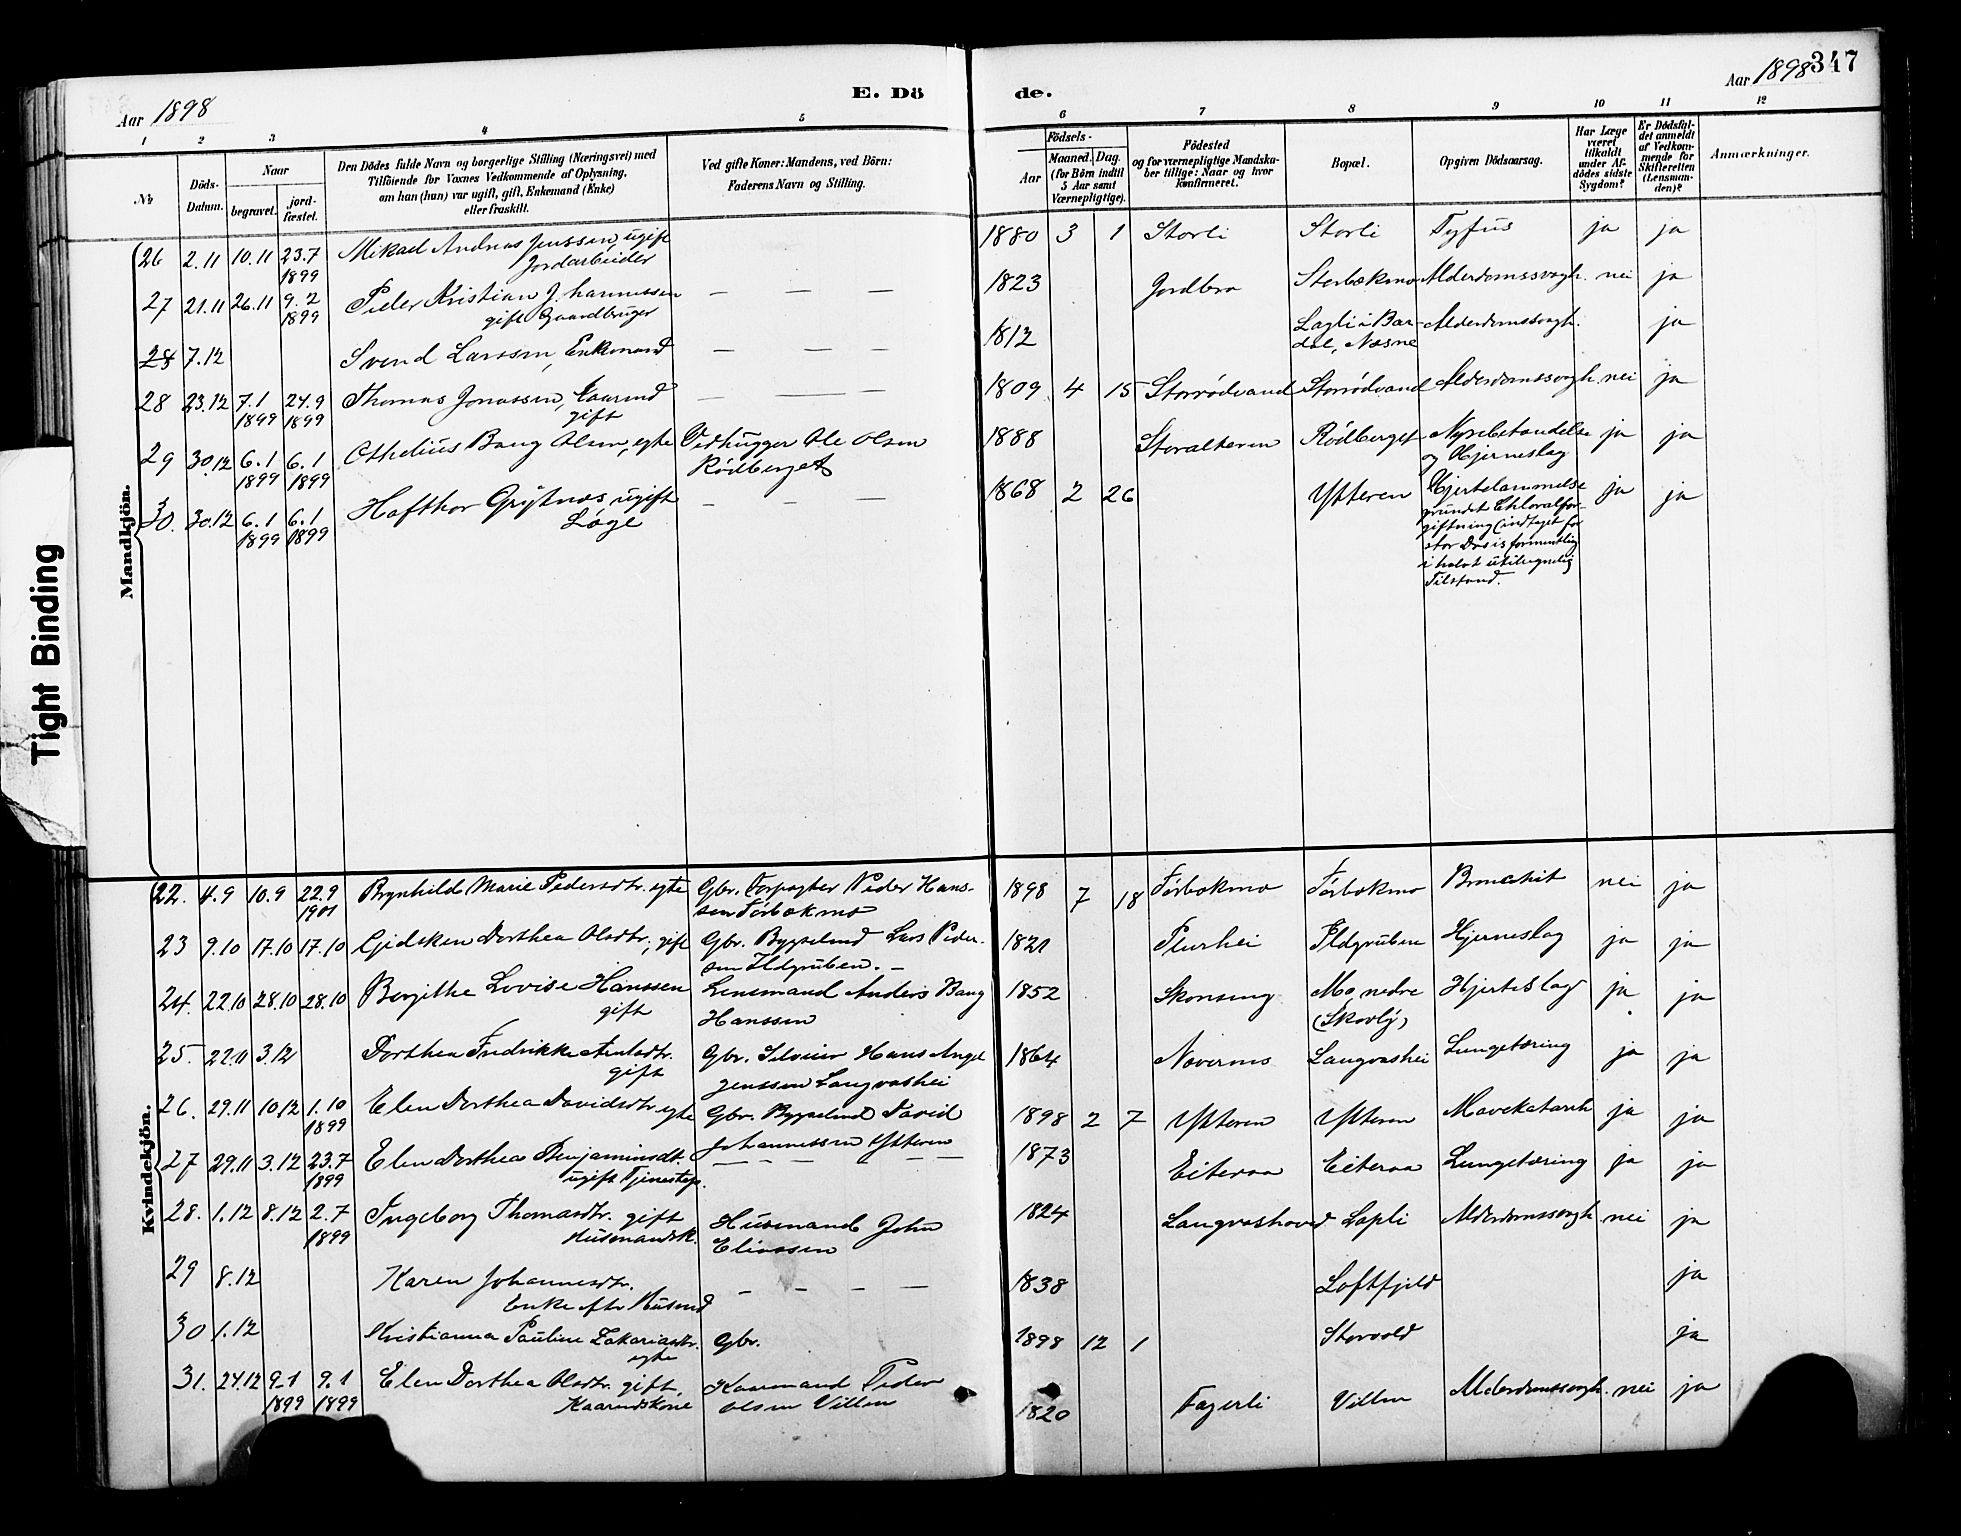 Aar 1898
E. Dö
de.
Aar 1898
347
1 2 3 4 5 6 7 8 9 10 11 12
No
Döds-
Datum.
Naar
begravet.
jord-
fæstet.
Den Dödes fulde Navn og borgerlige Stilling (Næringsvei) med
Tilföiende for Voxnes Vedkommende af Oplysning,
om han (hun) var ugift, gift, Enkemand (Enke)
eller fraskilt.
Ved gifte Koner: Mandens, ved Börn:
Faderens Navn og Stilling.
Födsels-
Aar
Maaned. Dag.
(for Börn indtil
5 Aar samt
Værnepligtige).
Födested
og for værnepligtige Mandska-
ber tillige: Naar og hvor
konfirmeret.
Bopæl.
Opgiven Dödsaarsag.
Har Læge
været
tilkaldt
under Af-
dödes sidste
Sygdom?
Er Dödsfal-
det anmeldt
af Vedkom-
mende for
Skifteretten
(Lensman-
den)?
Anmærkninger.
Tight Binding
Mandkjön.
26 2.11 10.11 23.7 Mikael Andreas Jenssen, ugift 1880 3 1 Storli Storli Tyfus ja ja
1899 Jordarbeider
27 21.11 26.11 9.2 Peder Kristian Johannessen — — — 1823 Jordbro Storbækmo Alderdomssvagh. nei ja
1899 gift Gaardbruger
28 7.12 Svend Larssen, Enkemand — — — 1812 Lagli i Bar- Alderdomssvagh. ja
dal, Næsne
28 23.12 7.1 24.9 Thomas Jonassen, Kaarmd — — — 1809 4 15 Storrödvand Storrödvand Alderdomssvagh. nei ja
1899 1899 gift
29 30.12 6.1 6.1 Othelius Bang Olsen, egte Vedhugger Ole Olsen 1888 Storalteren Rödberget Nyrebetændelse ja ja
1899 1899 Rödberget og Hjerneslag
30. 30.12 6.1 6.1 Hafthor Grytnæs, ugift — — — 1868 2 26 Ytteren Hjertelammelse ja ja
1899 1899 Læge grundet Chloralfor-
giftning (indtaget for
stor Dosis formentlig
i halvt utilregnelig
Tilstand.
Kvindekjön.
22. 4.9 10.9 22.9 Brynhilde Marie Pedersdtr. egte Gbr. Forpagter Peder Hans- 1898 7 18 Törbækmo Törbækmo Bronchit nei ja
1901 sen Törbækmo
23 9.10 17.10 17.10 Gidsken Dorthea Olsdtr., gift Gbr. Bygselmd Lars Peder- 1821 Plurhei Ildgruben Hjerneslag ja ja
sen Ildgruben. —
24. 22.10 28.10 28.10 Bergithe Lovise Hanssen Lensmand Anders Bang 1852 Skonseng Mo, nedre Hjerteslag ja ja
gift Hanssen (Skovly)
25. 22.11 3.12 Dorthea Fredrikke Arntsdtr. Gbr. Selveier Hans Angel 1864 Ævermo Langvashei Lungetæring ja ja
gift Jenssen Langvashei
26. 29.11 10.12 1.10 Elen Dorthea Davidsdtr. egte Gbr. Bygselmd David 1898 2 7 Ytteren Ytteren Mavekatarrh ja ja
1899 Johannessen Ytteren
27 29.11 3.12 23.7 Elen Dorthea Benjaminsdt. — — — — — — 1873 Eiteraa Eiteraa Lungetæring ja ja
1899 ugift Tjenestep.
28. 1.12 8.12 2.7 Ingeborg Thomasdtr. gift Husmand John 1824 Langvashoved Lapli Alderdomssvagh. nei ja
1899 Husmandsk. Eliassen
29 8.12 Karen Johannesdtr. — — — — 1838 Loftfjeld ja
Enke eftr Husmd
30 1.12 Kristianna Pauline Zakariasdtr. Gbr. 1898 12 1 Storvold ja
egte
31. 24.12 9.1 9.1 Elen Dorthea Olsdtr. gift, Kaarmand Peder 1820 Fagerli Villen Alderdomssvagh. nei ja
1899 1899 Kaarmdskone Olsen Villen